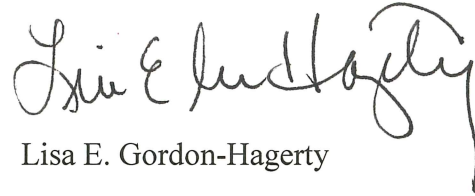 Lisa E. Gordon-Hagerty
Lisa E. Gordon-Hagerty